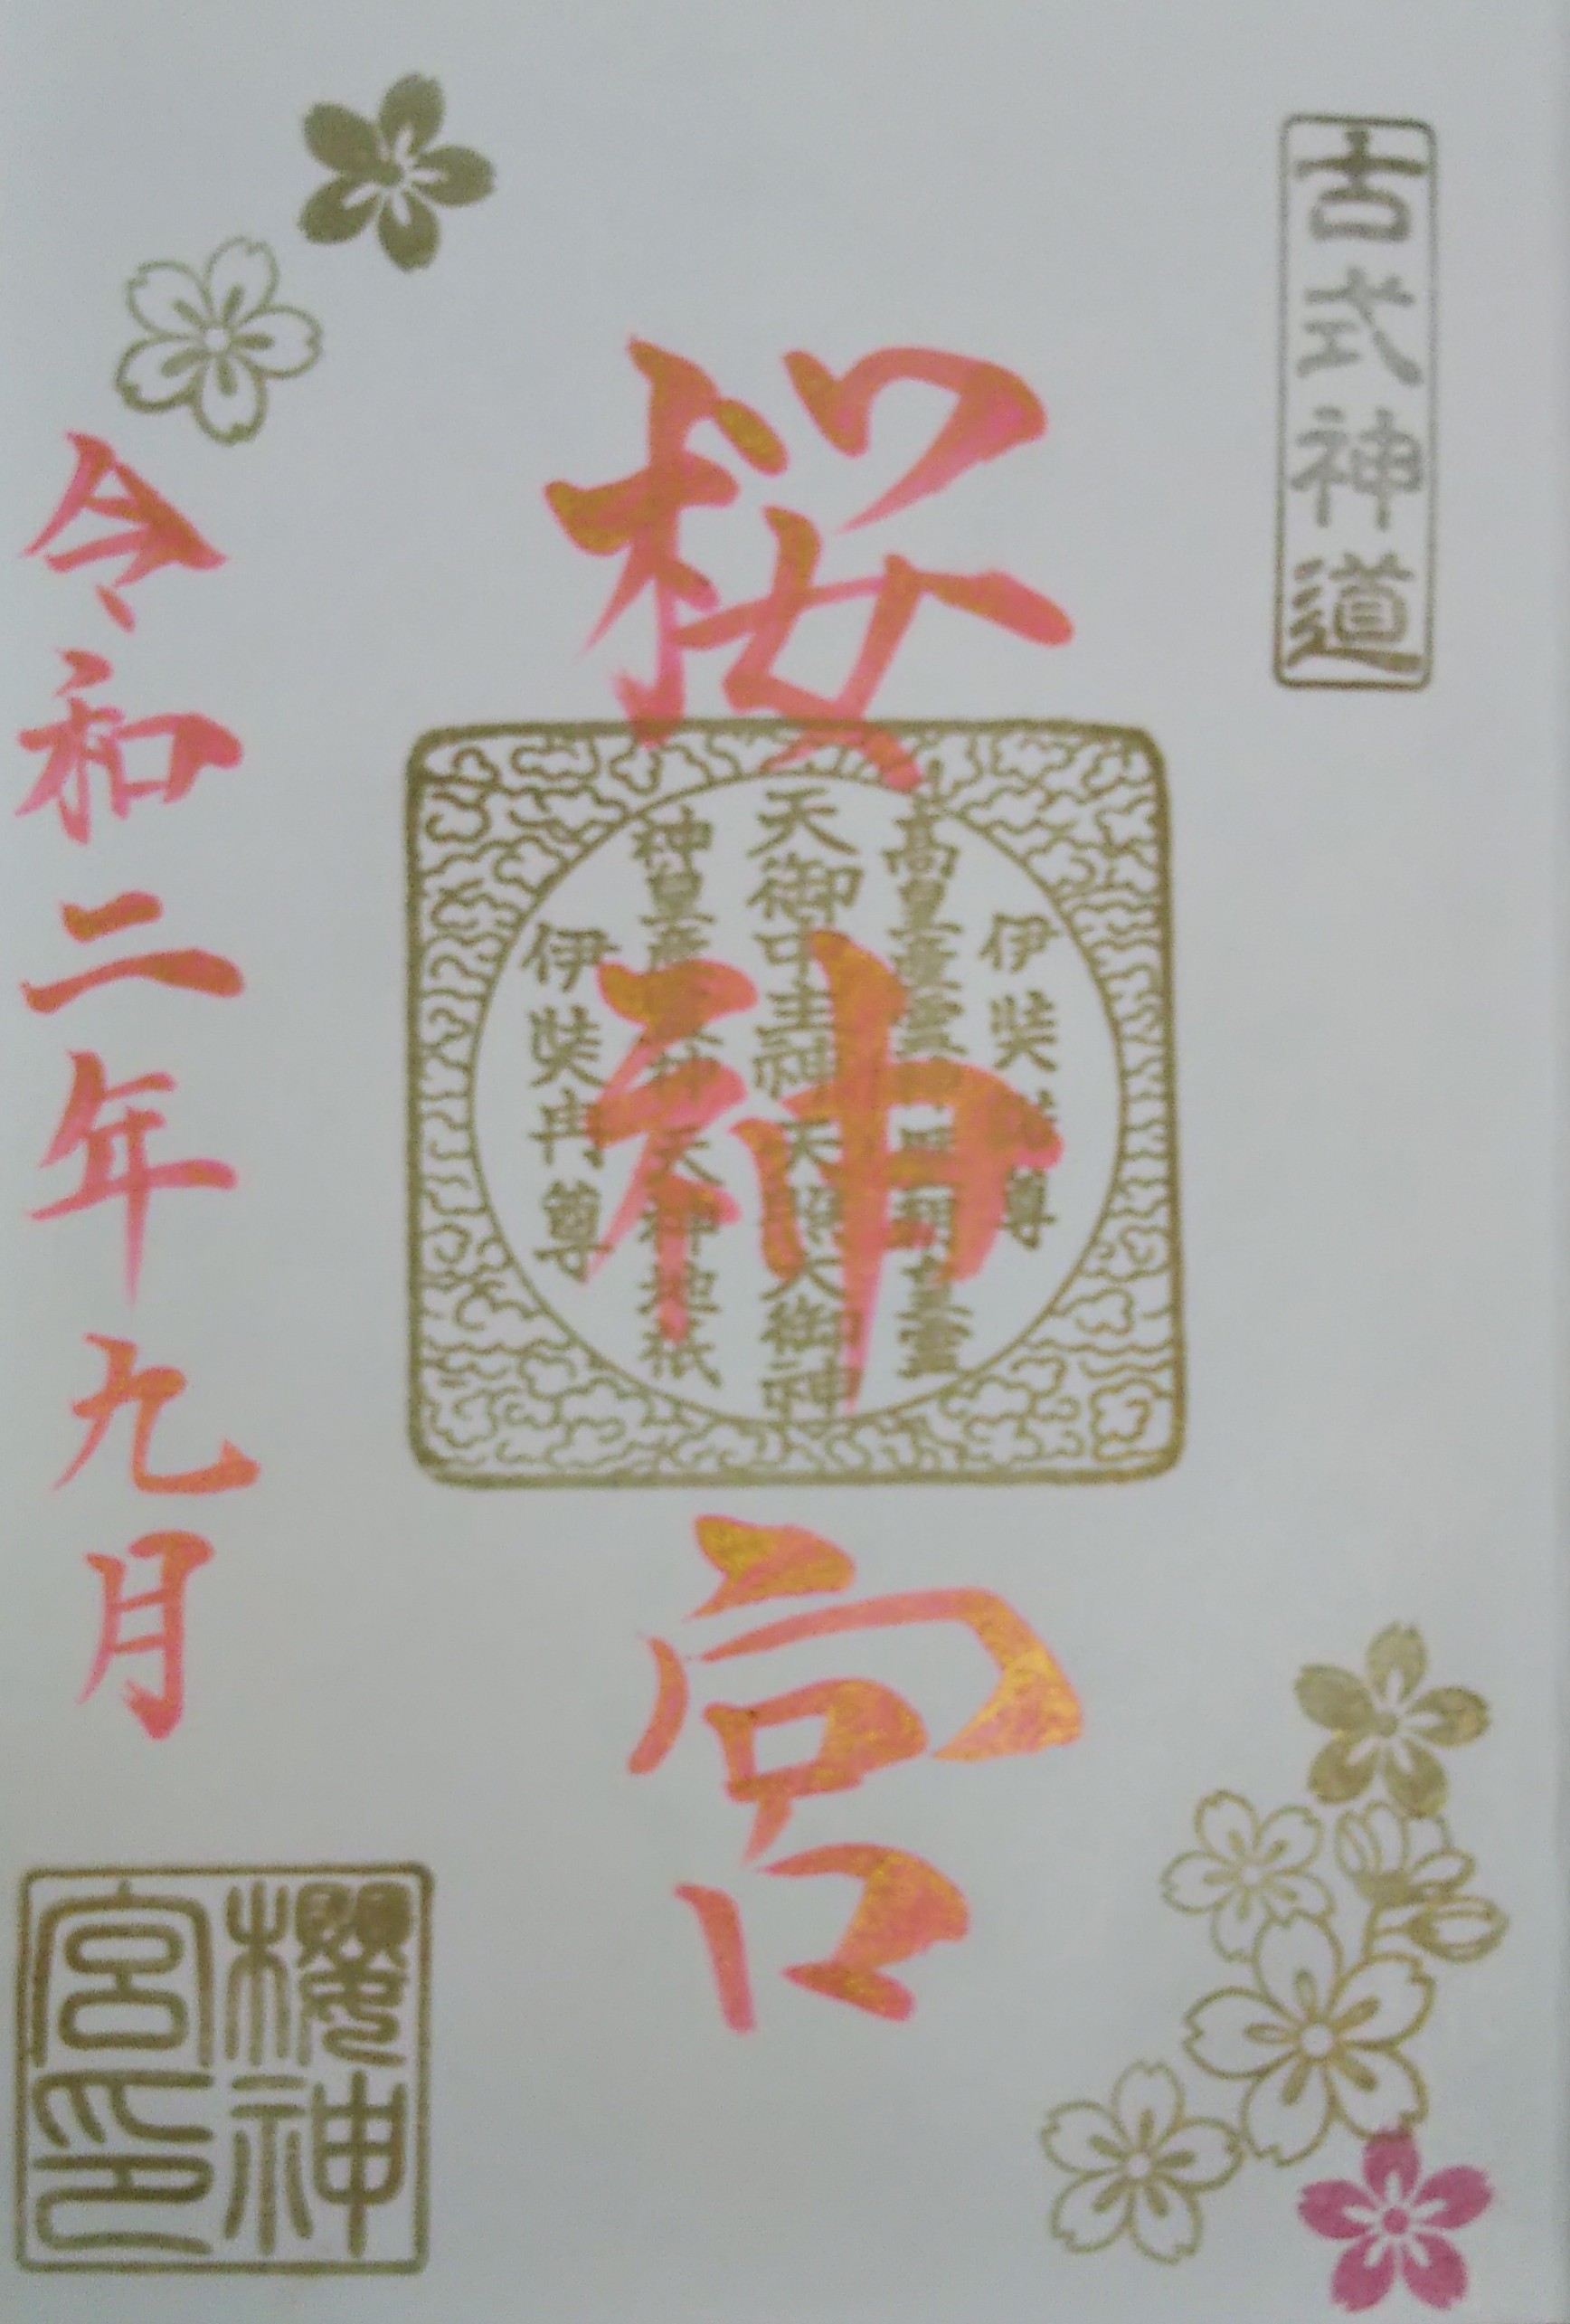 古式神道
桜神宮
伊奘諾尊
高皇産霊神 歴朝皇霊
天御中主神 天照大御神
神皇産霊神 天神地祇
伊奘冉尊
令和二年九月
櫻神宮印